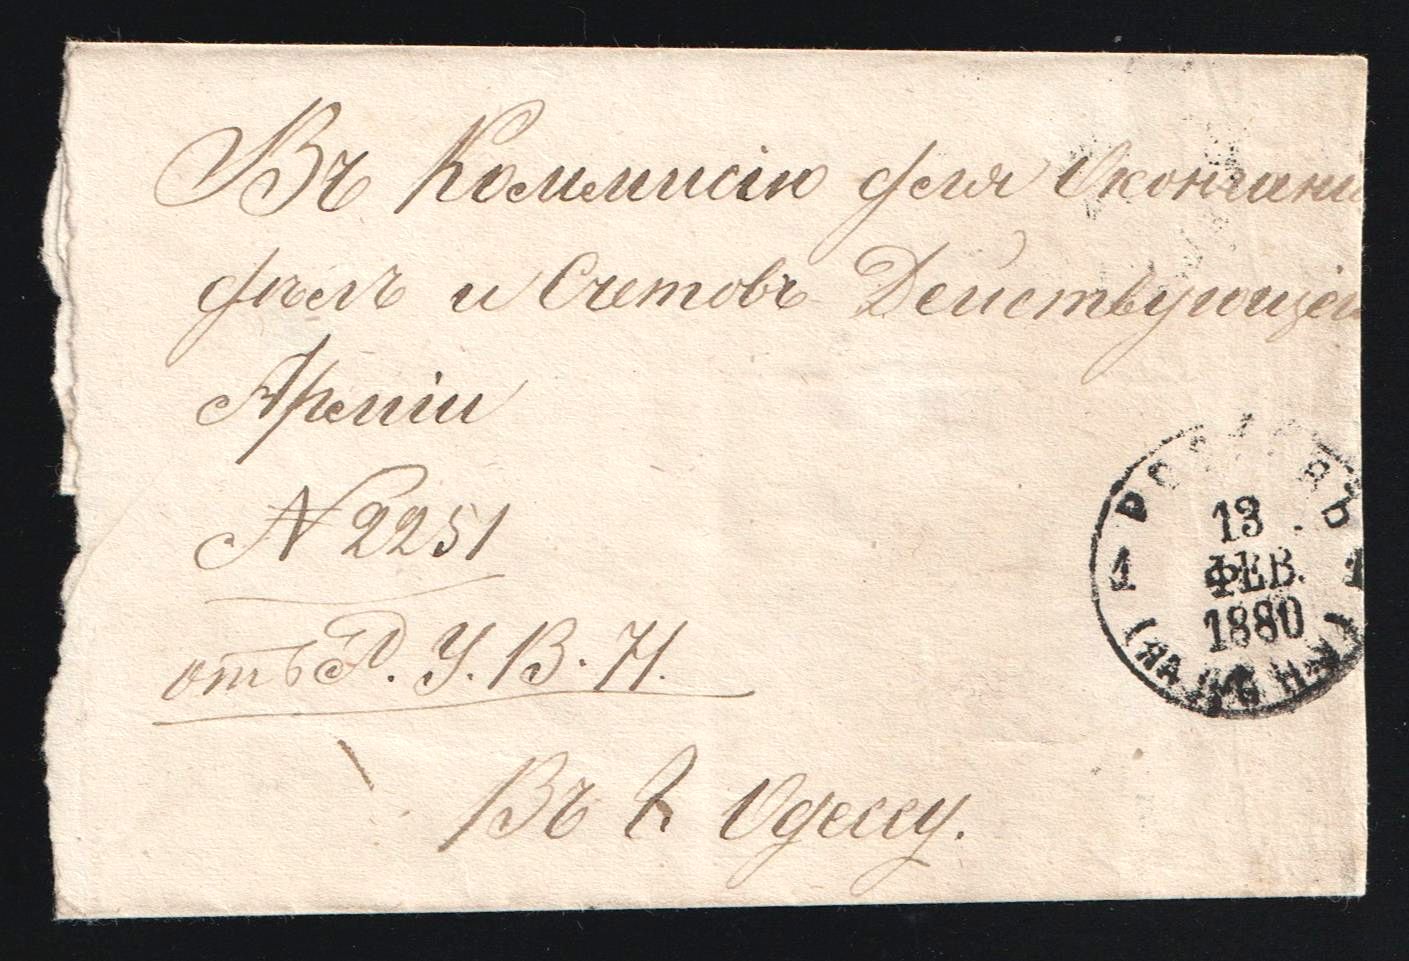 Въ Коммисію для Окончані
дѣлъ и Счетовъ Действующей
Арміи
N 2251
отъ Р. У. В. Н.
Въ г. Одессу.
РОСТОВЪ
13
1 ФЕВ. 1
1880
(НА ДОНУ)